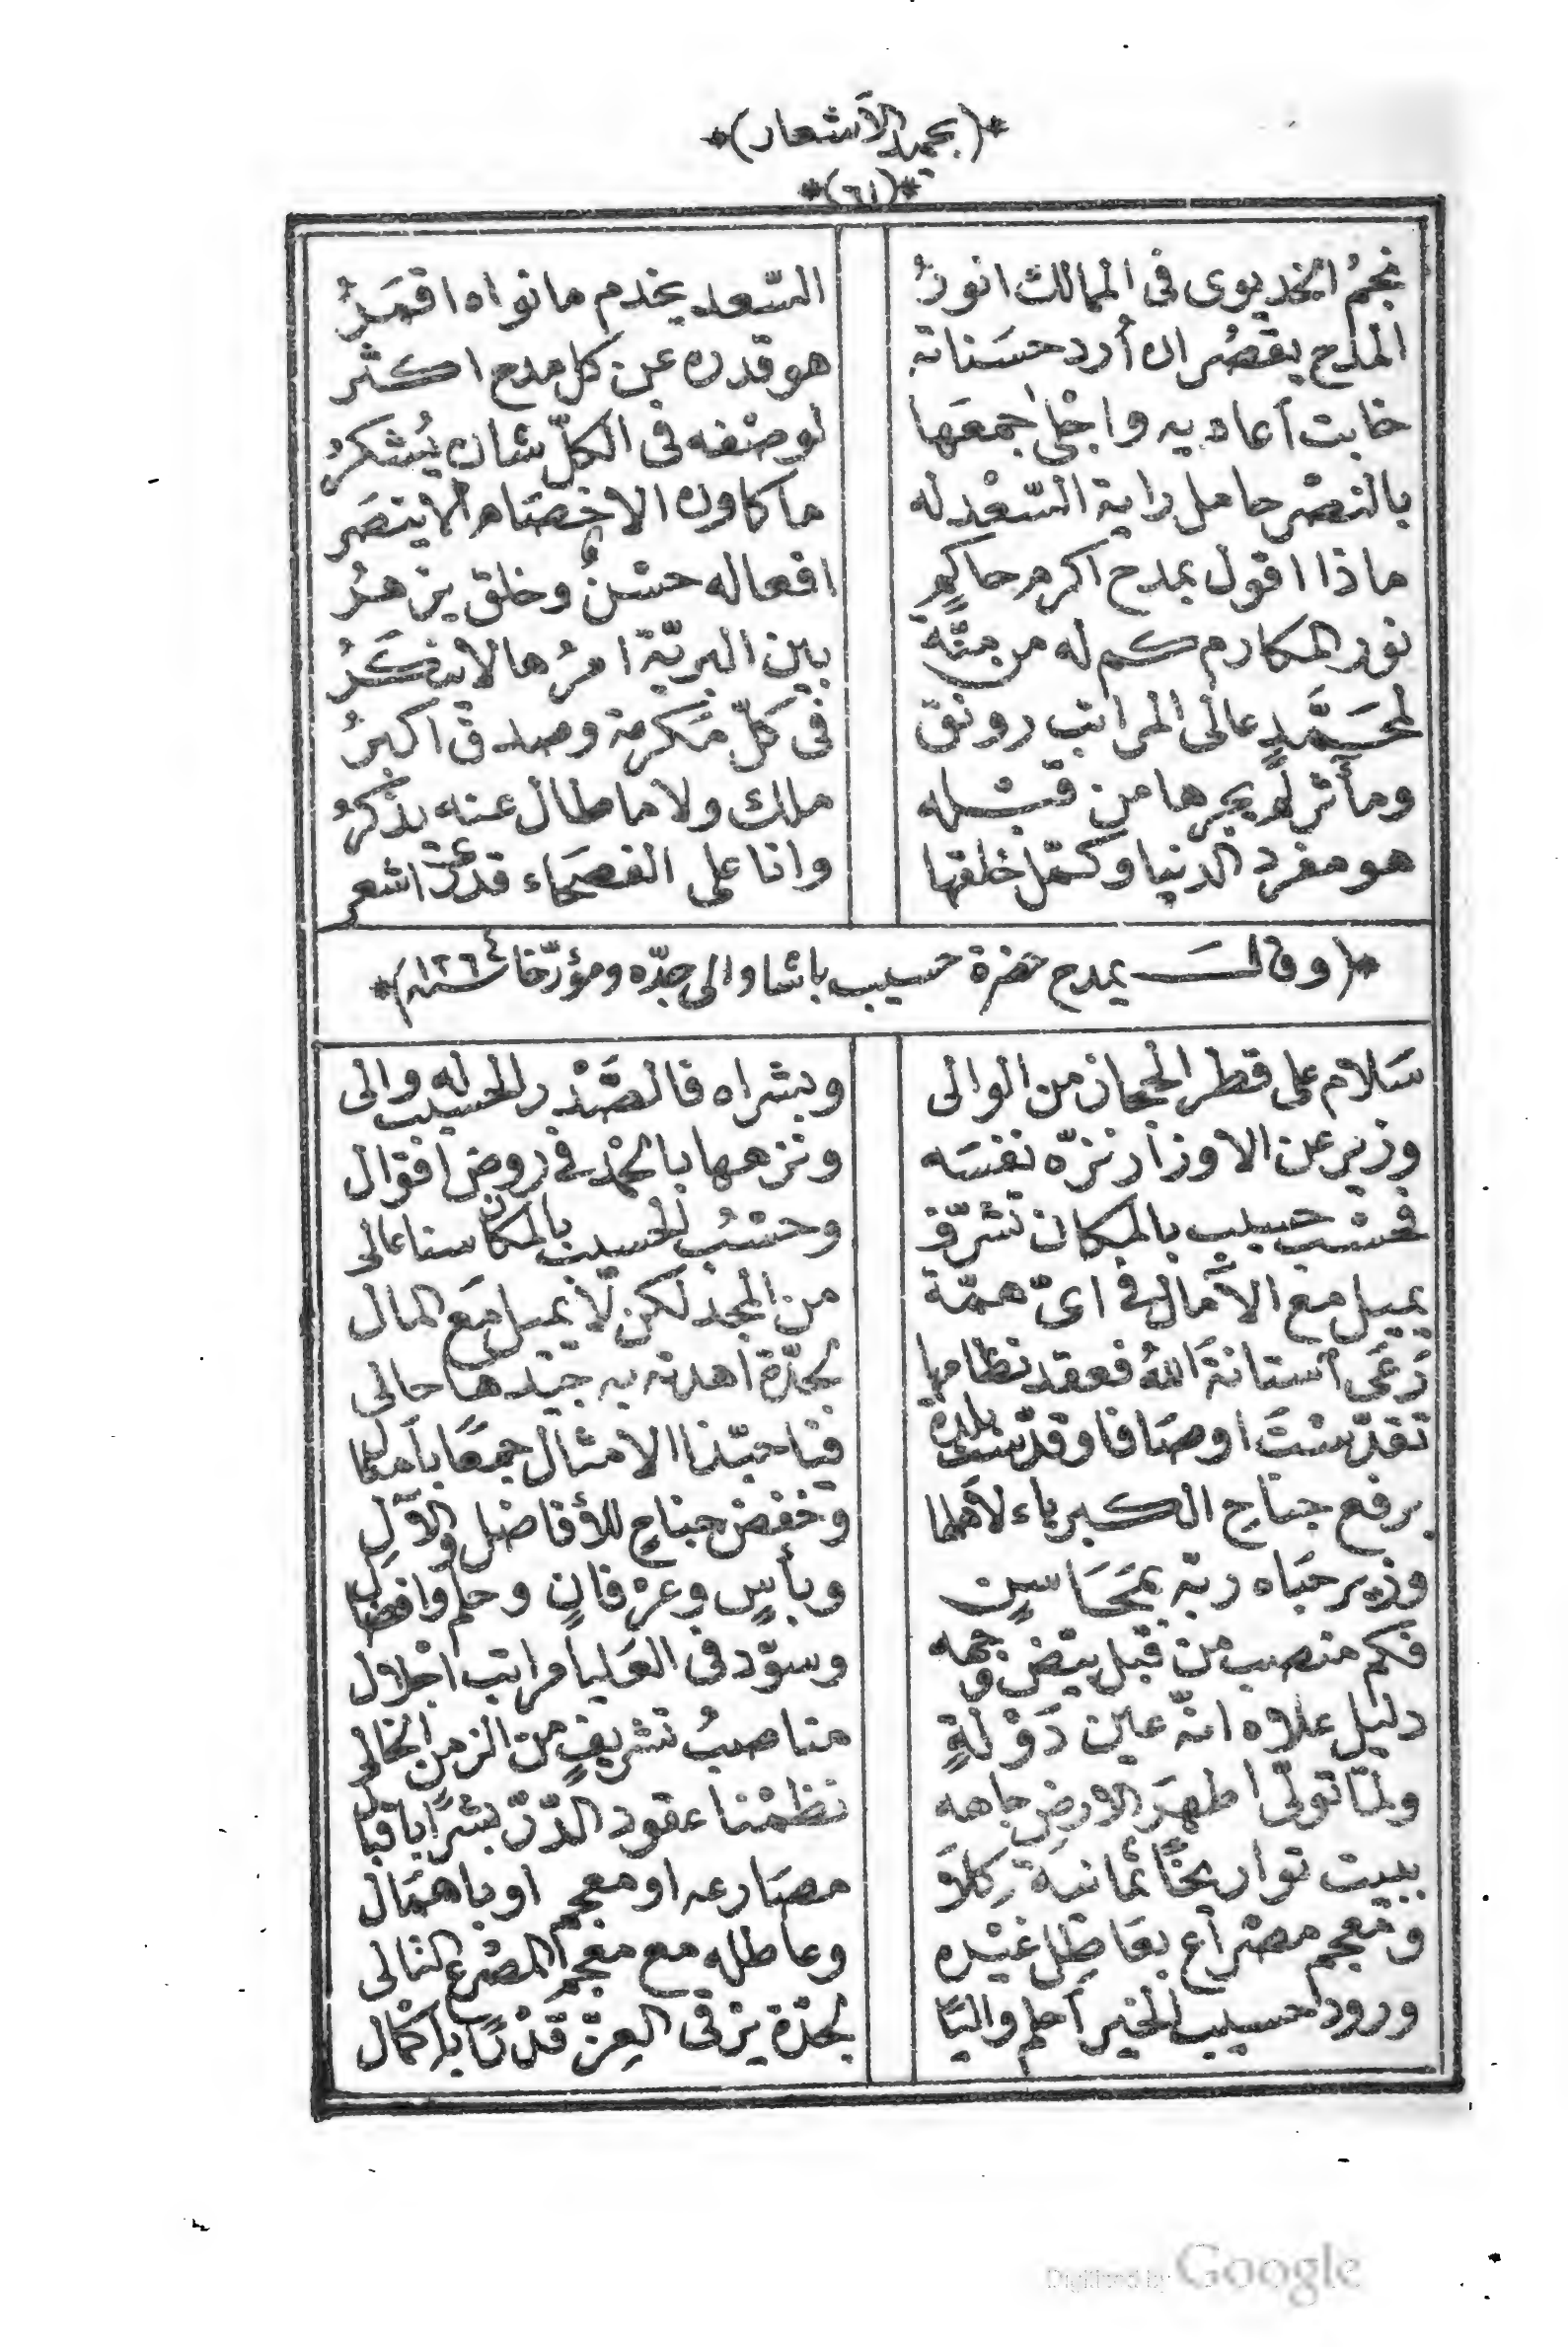 *(بحميد الأشعار)*
*(٦١)*
نجمُ الخديوى فى الممالك انورُ السّعد يخدم ما نواه اقمَرُ
المدح يقصُر ان أُرد حسَناته هو قدره عن كل مدح اكثر
خابت أعاديه واجلى جمعَها لوصْفه فى الكلّ شان يُشكرُ
بالنصْر حامل راية السّعْد له ما كاون الاخصَام الا ينصَر
ماذا اقول بمدح اكرم حاكمٍ افعاله حسْنٌ وخلق يزهرُ
نور المكارم كم له من منّة بين البريّة امرُها لا ينكَرُ
لمحَمَّدٍ عالى المراتب رونق فى كلّ مَكرمة وصدق اكبرُ
ومأثر لم يجرها من قبْله ملك ولا ما طال عنه يذكرُ
هو مفرد الدنيا وكمّل خلقها وانا على الفصَحاء قدرى اشعر
*(وقالَ يمدح حضرة حسيب باشا والى جدّه ومؤرّخا سنة ١٢٦٤)*
سَلام على قطر الحجاز من الوالى وبشراه فالصَّدْر الحسيب له والى
وزير عن الاوزار نزّه نفسَه ونزهها بالحمْد فى روض افوال
فحسْب حسيب بالمكان تشرّف وحسْبُ الحسيب بالمكان سنا عالى
يميل مع الآمال فى اىّ همّة من المجد لكن لا يميل مَع المال
رَعَى آستانةَ اللهُ فعقد نظامها بجدّة اهدته به جيْدها حالى
تقدّسْتَ اوصَافا وقدّست بلدة فيا حبّذا الامثال جمعًا بأمثال
برفع جناح الكبرياء لأهلها وخفض جناحٍ للأفاضل والآلِ
وزير حبَاه ربّه بمَحَاسنٍ وبأسٍ وعرْفانٍ وحلم وافضال
فكم منصب من قبْل بيّض وجهه وسوّد فى العَليا مراتب اجْلال
دليل علاه انّه عين دَوْلةٍ مناصبُ تشريفٍ من الزمن الخالى
ولمّا تولّى اطهَرَ الارضِ جاهه نظمْنا عقود الدّرّ بشرًا باقبال
ببيت تواريخًا ثمانيَة كِلاَ مصَارعه او معجم او باهمَال
ومعجم مصْراع بعَاطِل غيْره وعاطله مع معجم المصْرع التالى
ورود حسيب الخير أحلم واليًا بجدّة يرْقى العِزّ قدْرًا باكْمال